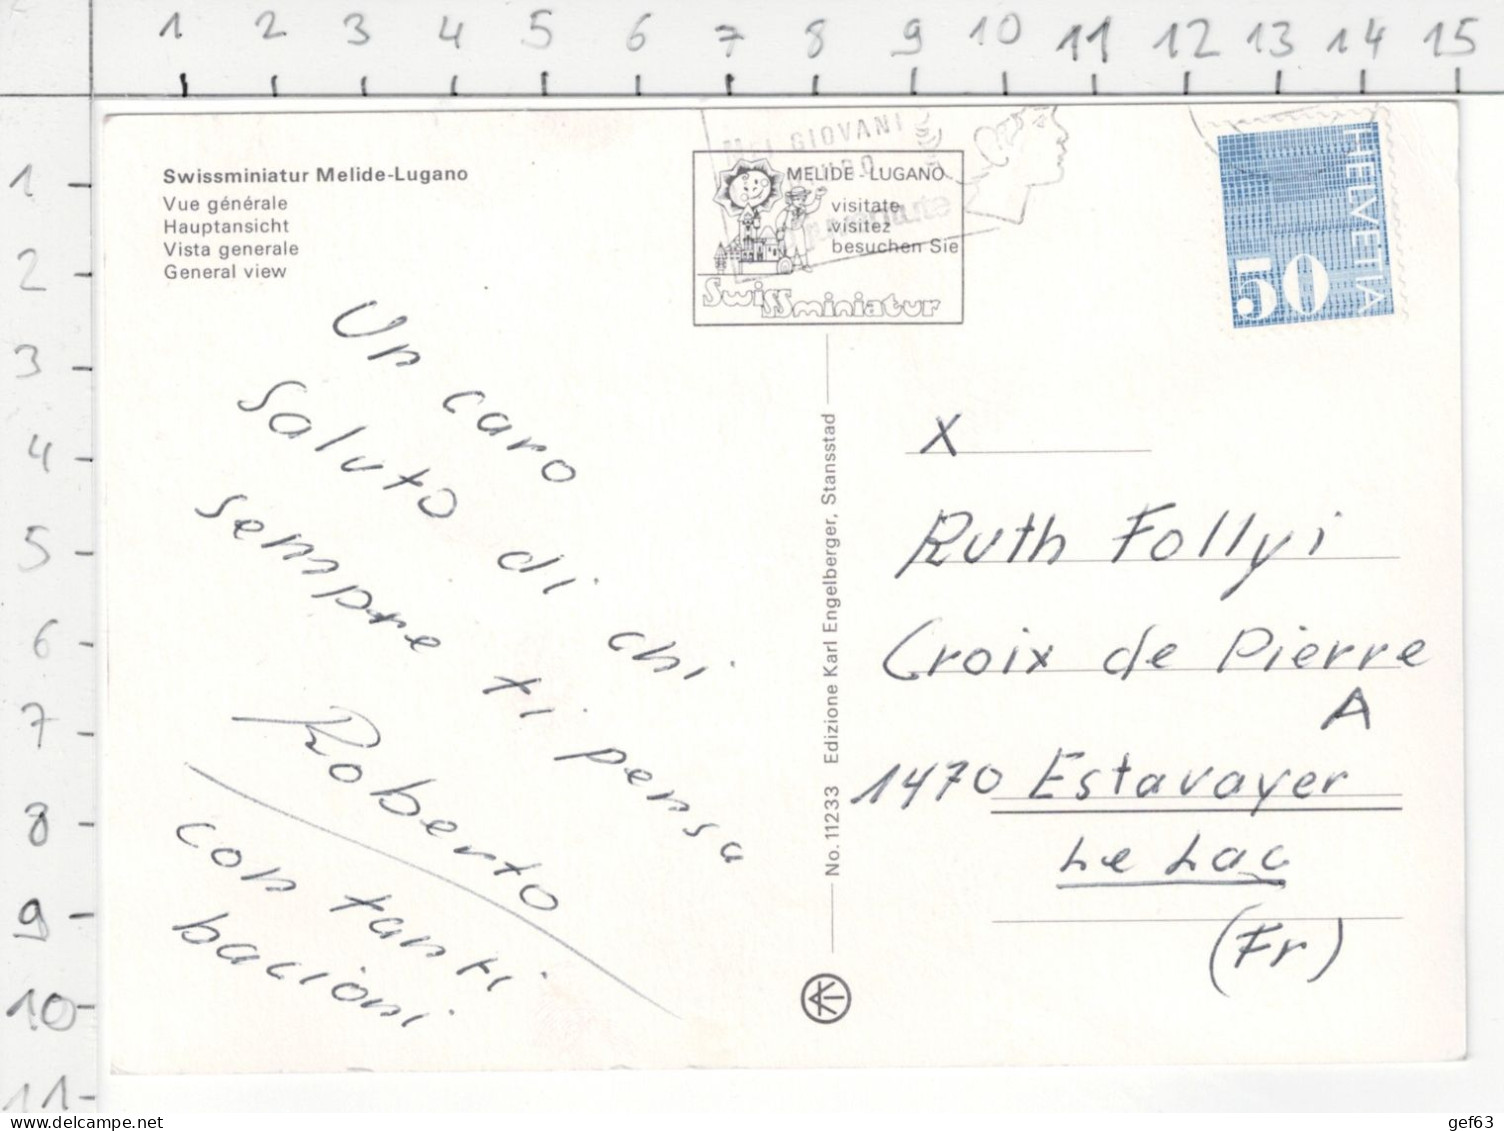 1 2 3 4 5 6 7 8 9 10 11 12 13 14 15
1
2
3
4
5
6
7
8
9
10
11
Swissminiatur Melide-Lugano
Vue générale
Hauptansicht
Vista generale
General view
GIOVANI
MELIDE - LUGANO
visitate
visitez
besuchen Sie
Swissminiatur
HELVETIA
50
Un caro
saluto di chi
sempre ti pensa
Roberto
con tanti
bacioni
No. 11233 Edizione Karl Engelberger, Stansstad
X
Ruth Follyi
Croix de Pierre
A
1470 Estavayer
Le Lac
(Fr)
www.delcampe.net
gef63